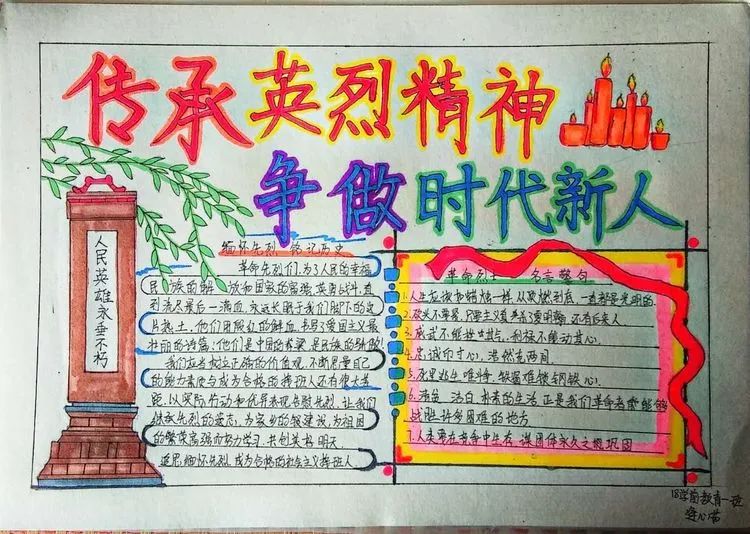 传承英烈精神
争做时代新人
人民英雄永垂不朽
缅怀先烈 铭记历史
革命先烈们,为了人民的幸福
民族的解放和国家的富强,英勇战斗,直
到流尽最后一滴血,永远长眠于我们脚下的这
片热土,他们用殷红的鲜血,书写了爱国主义最
壮丽的诗篇:他们是中国的脊梁,是民族的骄傲!
我们应当树立正确的价值观,不断衡量自己
的能力素质与成为合格的接班人还有很大差
距,以实际行动和优异表现告慰先烈,让我们
继承先烈的遗志,为家乡的建设,为祖国
的繁荣富强而努力学习,共创美好明天
追思缅怀先烈,成为合格的社会主义接班人
革命烈士 名言警句
1.人生应该如蜡烛一样,从顶燃到底,一直都是光明的.
2.砍头不要紧,只要主义真,杀了夏明翰,还有后来人
3.威武不能挫其气,利禄不能动其心.
4.忠诚印寸心,浩然充两间
5.死里逃生唯斗争,铁窗难锁钢铁心
6.清贫 洁白 朴素的生活,正是我们革命者能够
战胜许多困难的地方
7.人类要在竞争中生存,
18学前教育一班